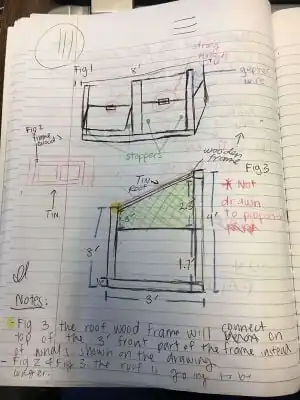 Fig 1
3'
strong
gap
wire
stoppers
Fig 2
frame
TIN
wooden
frame
Fig 3
Tin
Roof
* Not
drawn
to
3'
4'
1.7'
3'
Notes:
Fig 3 the roof wood frame will connect
top of the 3' front part of the frame instead
of what is shown on the drawing
- Fig 2 & Fig 3 the roof is going to be